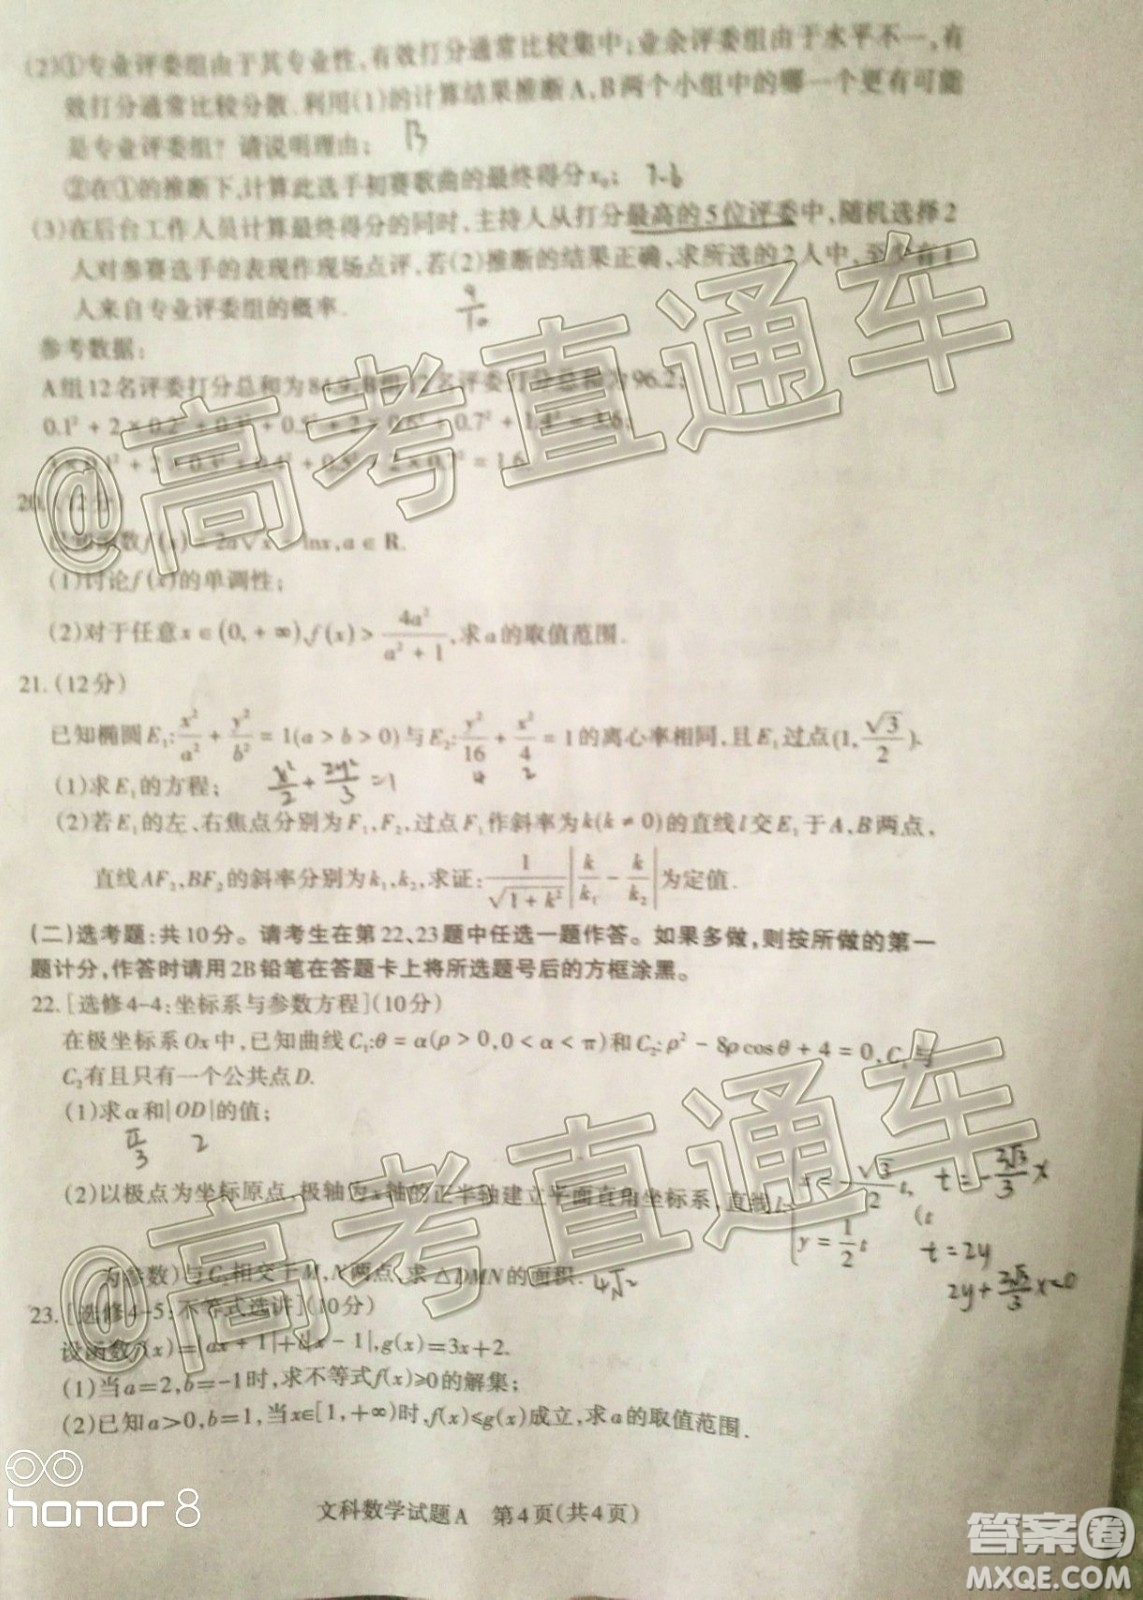 (2)①专业评委组由于其专业性,有效打分通常比较集中;业余评委组由于水平不一,有
效打分通常比较分散.利用(1)的计算结果推断A,B两个小组中的哪一个更有可能
是专业评委组?请说明理由; B
②在①的推断下,计算此选手初赛歌曲的最终得分x₀;
(3)在后台工作人员计算最终得分的同时,主持人从打分最高的5位评委中,随机选择2
人对参赛选手的表现作现场点评,若(2)推断的结果正确,求所选的2人中,至少有1
人来自专业评委组的概率. 9/10
参考数据:
A组12名评委打分总和为84.9,B组12名评委打分总和为96.2;
0.1² + 2×0.2² + 0.3² + 0.5² + 2×0.6² + 0.7² + 1.4² = 3.6;
20.(12分)
(1)讨论f(x)的单调性;
(2)对于任意x∈(0,+∞),f(x) > 4a²/(a²+1),求a的取值范围.
21.(12分)
已知椭圆E₁:x²/a² + y²/b² = 1(a > b > 0)与E₂:y²/16 + x²/4 = 1的离心率相同,且E₁过点(1,√3/2).
4 2
(1)求E₁的方程; x²/2 + 2y²/3 = 1
(2)若E₁的左、右焦点分别为F₁,F₂,过点F₁作斜率为k(k≠0)的直线l交E₁于A,B两点,
直线AF₂,BF₂的斜率分别为k₁,k₂,求证:1/√(1+k²)|k/k₁ - k/k₂|为定值.
(二)选考题:共10分。请考生在第22、23题中任选一题作答。如果多做,则按所做的第一
题计分,作答时请用2B铅笔在答题卡上将所选题号后的方框涂黑。
22.[选修4-4:坐标系与参数方程](10分)
在极坐标系Ox中,已知曲线C₁:θ = α(ρ > 0,0 < α < π)和C₂:ρ² - 8ρcosθ + 4 = 0,C₁与
C₂有且只有一个公共点D.
(1)求α和|OD|的值;
π/3 2
(2)以极点为坐标原点,极轴为x轴的正半轴建立平面直角坐标系,直线l:{x = -√3/2 t, y = 1/2 t (t
t = -2√3/3 x
t = 2y
2y + 2√3/3 x = 0
为参数)与C₂相交于M,N两点,求△DMN的面积. 4√2
23.[选修4-5:不等式选讲](10分)
设函数f(x)=|ax+1|+b|x-1|,g(x)=3x+2.
(1)当a=2,b=-1时,求不等式f(x)≥0的解集;
(2)已知a>0,b=1,当x∈[1,+∞)时,f(x)≤g(x)成立,求a的取值范围.
文科数学试题A 第4页(共4页)
@高考直通车
@高考直通车
honor 8
答案圈
MXQE.COM